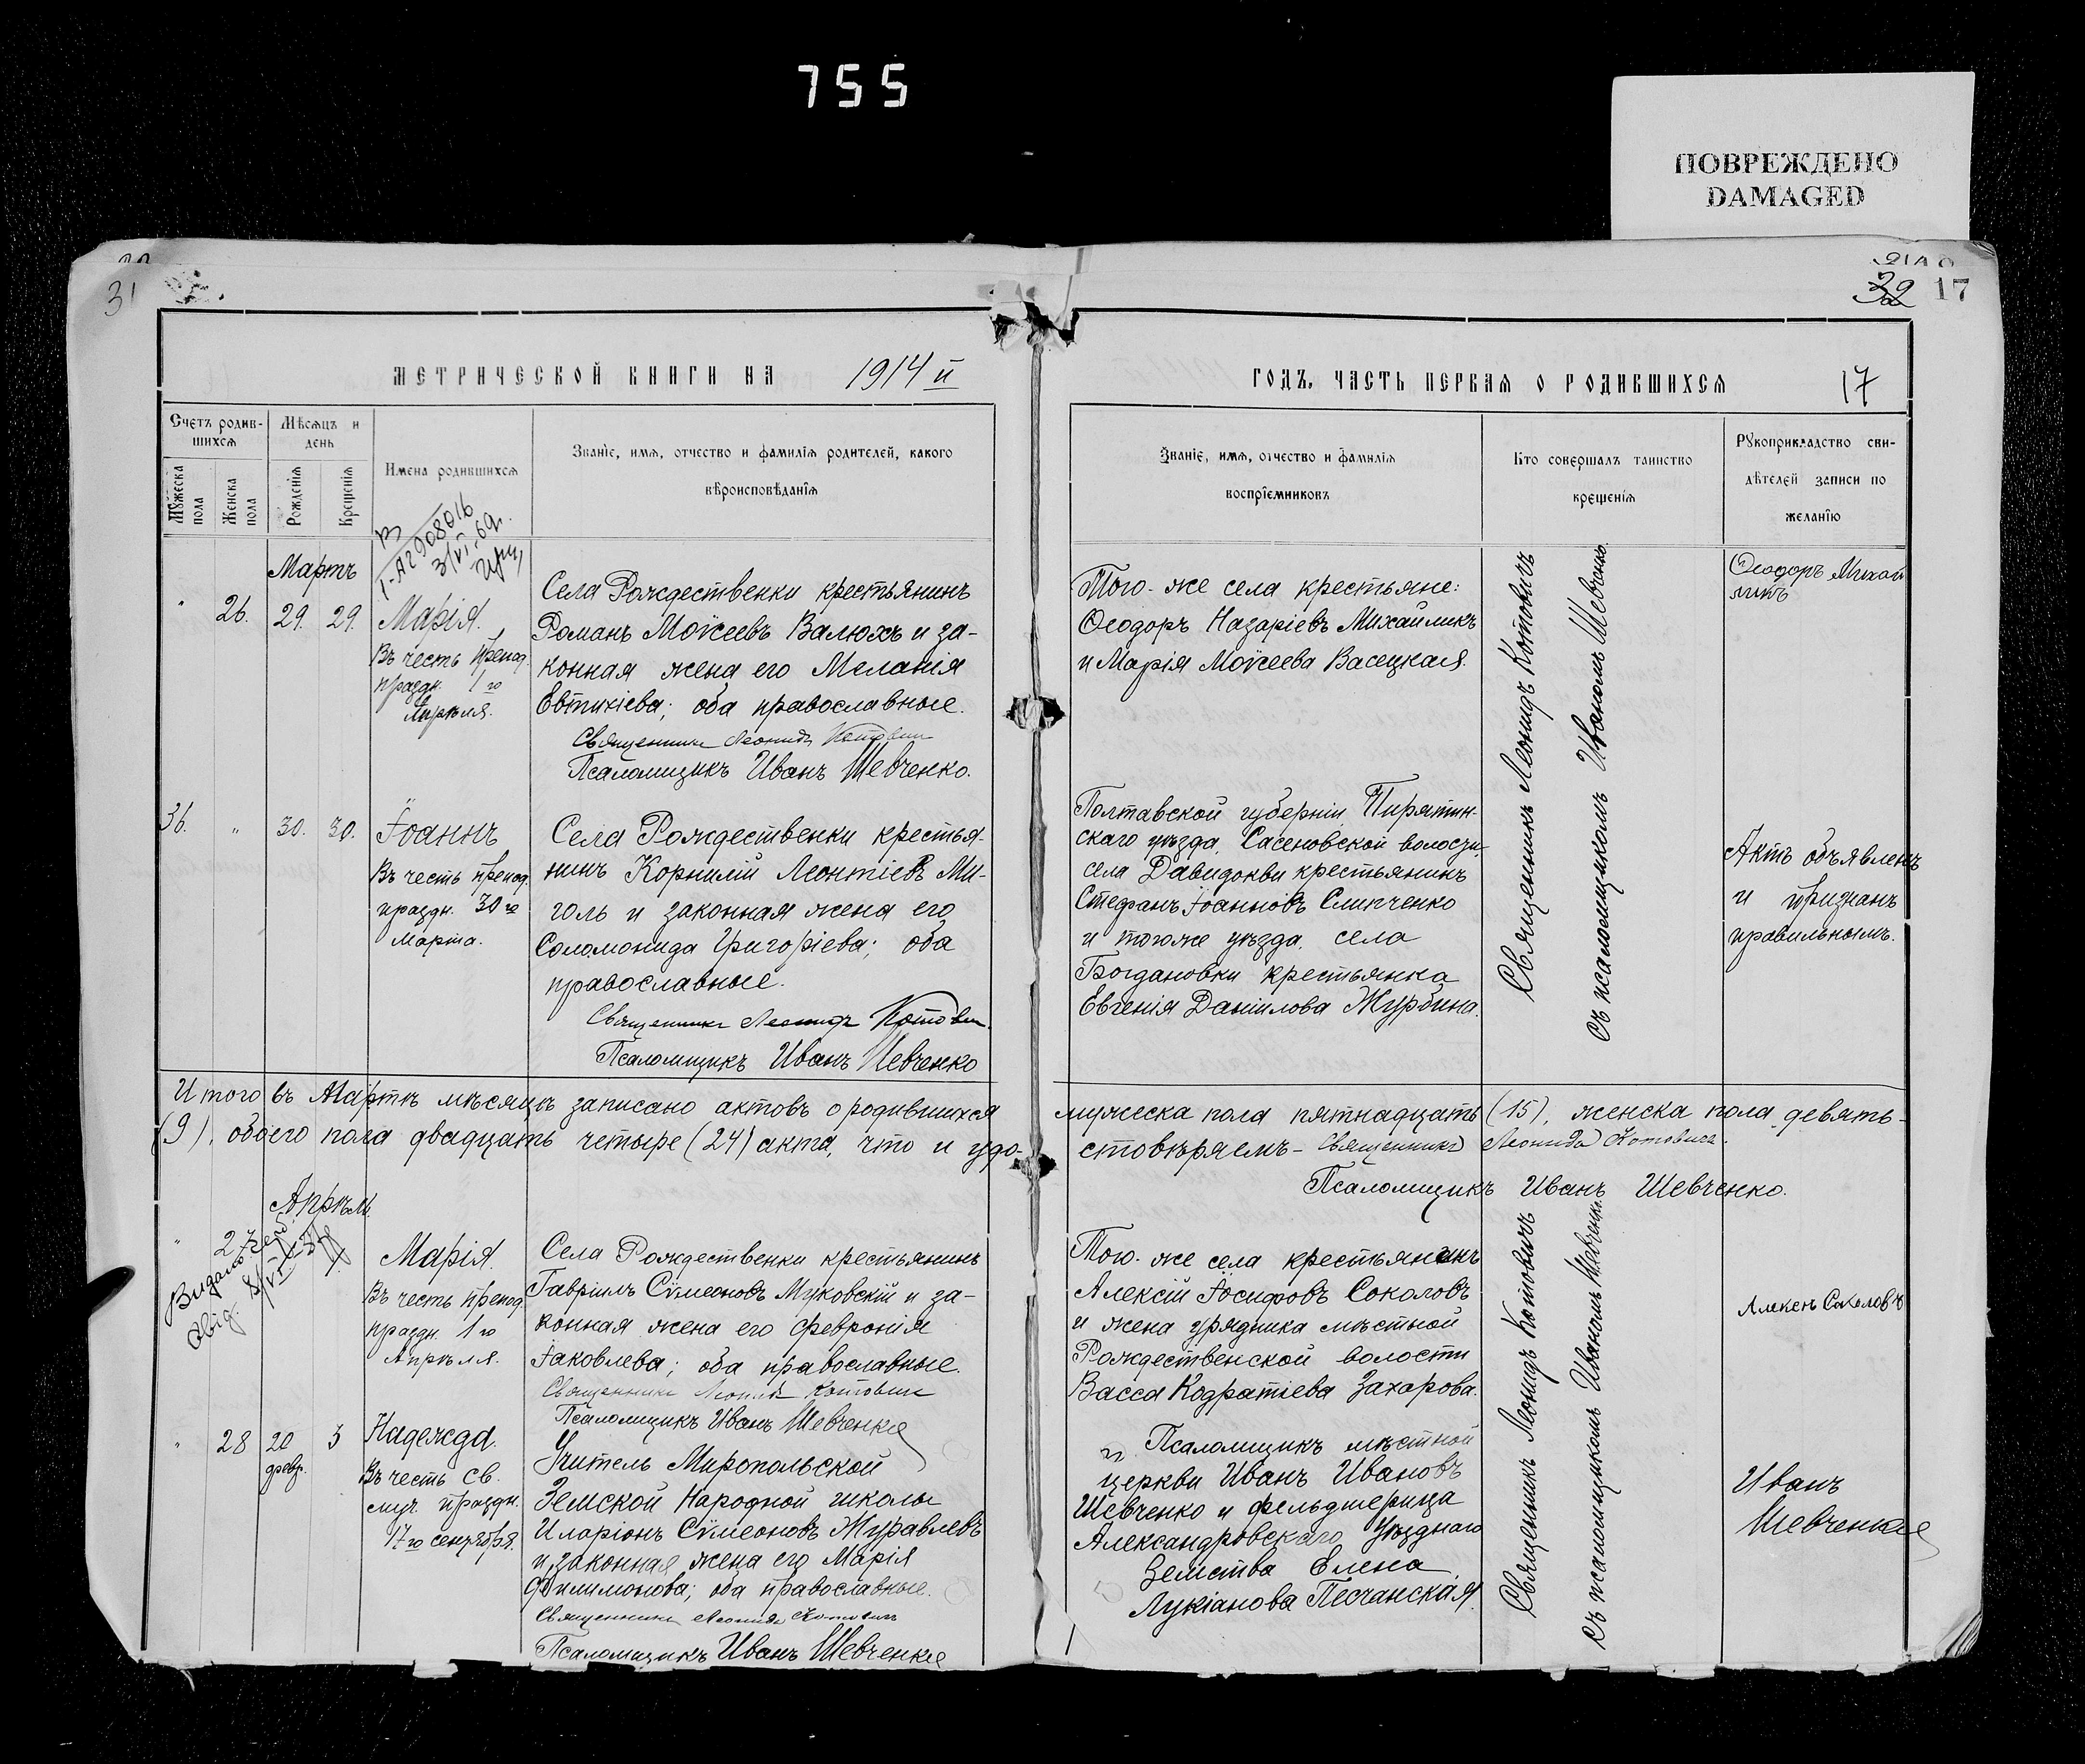 755
ПОВРЕЖДЕНО
DAMAGED
31
32 17
МЕТРИЧЕСКОЙ КНИГИ НА 1914 й
ГОДЪ, ЧАСТЬ ПЕРВАЯ О РОДИВШИХСЯ 17
Счетъ родив-
шихся
Мужеска пола
Женска пола
Мѣсяцъ и
день
Рожденія
Крещенія
Имена родившихся
Званіе, имя, отчество и фамилія родителей, какого
вѣроисповѣданія
Званіе, имя, отчество и фамилія
воспріемниковъ
Кто совершалъ таинство
крещенія
Рукоприкладство сви-
дѣтелей записи по
желанію
Мартъ
" 26. 29. 29.
Марія.
Въ честь препод.
праздн. 1го
Апрѣля.
Села Рождественки крестьянинъ
Романъ Моѵсеевъ Валюхъ и за-
конная жена его Меланія
Евтихіева; оба православные.
Священникъ Леонидъ Котович
Псаломщикъ Иванъ Шевченко.
Того-же села крестьяне:
Ѳеодоръ Назаріевъ Михайликъ
и Марія Моѵсеева Васецкая.
Священникъ Леонидъ Котовичъ
съ псаломщикомъ Иваномъ Шевченко.
Ѳеодоръ Михай
ликъ
36. " 30. 30.
Іоаннъ
Въ честь препод.
праздн. 30го
Марта.
Села Рождественки крестья-
нинъ Корнилій Леонтіевъ Ми-
голь и законная жена его
Соломонида Григоріева; оба
православные.
Священникъ Леонидъ Котович
Псаломщикъ Иванъ Шевченко
Полтавской губерніи, Пирятин-
скаго уѣзда, Сасеновской волости,
села Давидокви крестьянинъ
Стефанъ Іоанновъ Слипченко
и того-же уѣзда, села
Богдановки крестьянка
Евгенія Даніилова Журбина.
Актъ объявленъ
и признанъ
правильнымъ.
Итого въ Мартѣ мѣсяцѣ записано актовъ о родившихся мужеска пола пятнадцать (15), женска пола девять-
(9), обоего пола двадцать четыре (24) акта, что и удо-стовѣряемъ- Священникъ Леонидъ Котовичъ.
Псаломщикъ Иванъ Шевченко.
Апрѣль
" 27
Марія.
Въ честь препод.
праздн. 1го
Апрѣля.
Села Рождественки крестьянинъ
Гавріилъ Сѵмеоновъ Муковскій и за-
конная жена его Февронія
Іаковлева; оба православные.
Священникъ Леонидъ Котович
Псаломщикъ Иванъ Шевченко
Того-же села крестьянинъ
Алексій Іосифовъ Соколовъ
и жена урядника мѣстной
Рождественской волости
Васса Кодратіева Захарова.
Священникъ Леонидъ Котовичъ
съ псаломщикомъ Иваномъ Шевченко.
Алексѣй Соколовъ
" 28 20 февр. 3
Надежда.
Въ честь св.
муч. праздн.
17го сентября.
Учитель Миропольской
Земской Народной школы
Иларіонъ Сѵмеоновъ Журавлевъ
и законная жена его Марія
Филимонова; оба православные.
Священникъ Леонидъ Котович
Псаломщикъ Иванъ Шевченко
Псаломщикъ мѣстной
церкви Иванъ Ивановъ
Шевченко и фельдшерица
Александровскаго Уѣзднаго
Земства Елена
Лукіанова Песчанская.
Иванъ
Шевченко